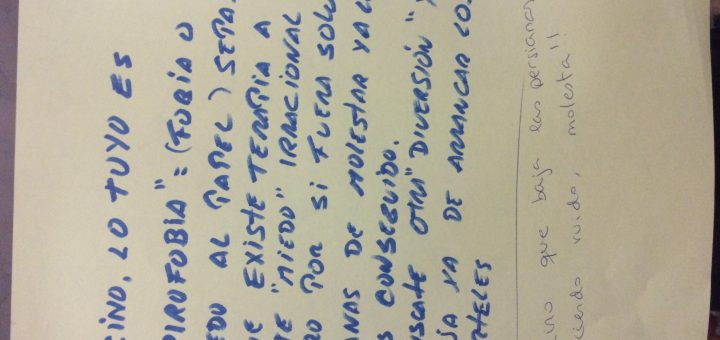 CINO, LO TUYO ES
PIROFOBIA" = (FOBIA O
EDO AL PAPEL) SEPA
E EXISTE TERAPIA A
E "MIEDO" IRRACIONAL
RO POR SI FUERA SOLO
ANAS DE MOLESTAR YA L
S CONSEGUIDO.
USCATE OTRA "DIVERSIÓN" Y
JA YA DE ARRANCAR LOS
TELES
ino que baja las persianas
ciendo ruido, molesta!!